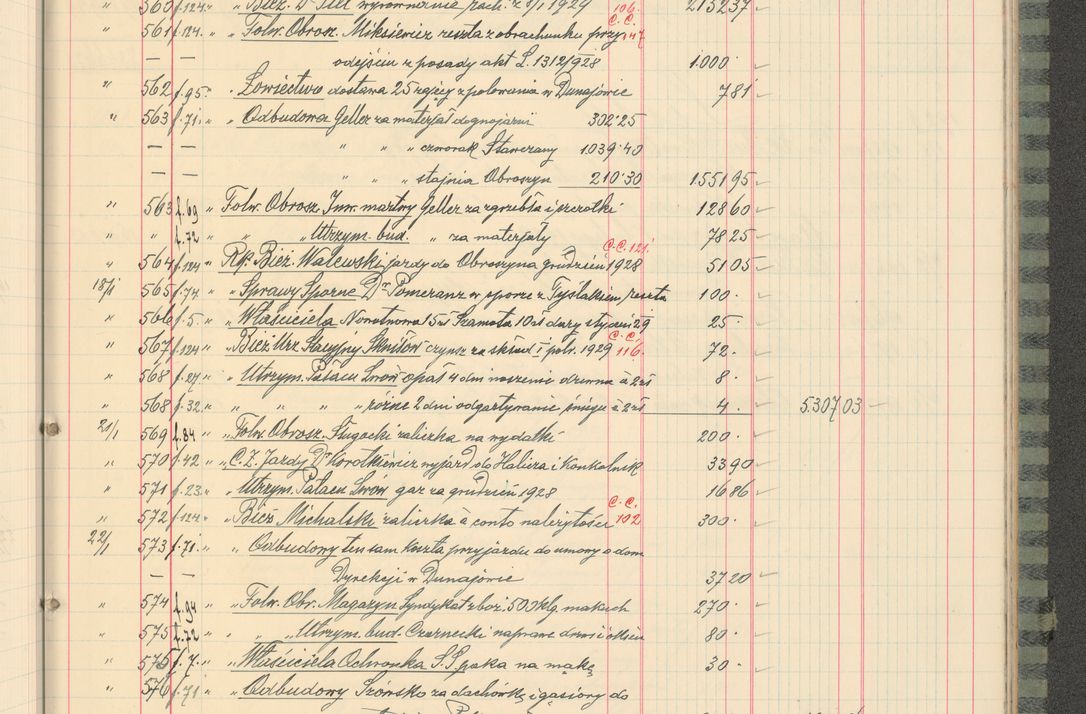 " 560 f.124. " " Bież. Dr wyrównanie rach. z 8/I 1929 106. 2152 37
" 561 f.124. " " Folw. Obrosz. Miksiewicz reszta z obrachunku przy C.C. 147
— — odejściu z posady akt L. 1312/928 1.000 ·
" 562 f.95. " Łowiectwo dostawa 25 zajęcy z polowania w Dunajowie 781
" 563 f.71. " " Odbudowa Geller za materjał do gnojarni 302·25
— — " " " czworak Stawczany 1.039·40
— — " " " stajnia Obroszyn 210·30 1551 95
" 563 f.69 " Folw. Obrosz. Inw. martwy Geller za zgrzebła i szczotki 128 60
" " f.72 " " " Utrzym. bud. " za materjały 78 25
" 564 f.124 " Rk. Bież. Walewski jazdy do Obroszyna grudzień 1928 C.C. 121. 51 05
18/I " 565 f.74. " " Sprawy Sporne Dr Pomeranz w sporze z Tyślakiem reszta 100 ·
" 566 f.5. " " Właściciela 29 25 ·
" 567 f.124 " " Bież. Urz. Stacyjny Skniłów czynsz za skład I półr. 1929 C.C. 116. 72 ·
" 568 f.27. " " Utrzym. Pałacu Lwów opał 4 dni noszenie drzewa à 2zł 8 ·
" 568 f.32. " " " " " różne 2 dni odgartywanie śniegu à 2zł 4 · 5.307 03
21/I 569 f.84 " " Folw. Obrosz. Sługocki zaliczka na wydatki 200 ·
" 570 f.42 " " C.Z. Jazdy Dr Korotkiewicz wyjazd do Halicza i 33 90
" 571 f.23. " " Utrzym. Pałacu Lwów gaz za grudzień 1928 16 86
" 572 f.124. " " Bież. Michalski zaliczka à conto należytości C.C. 102 300 ·
22/I 573 f.71. " " Odbudowy ten sam koszta przyjazdu do umowy o dom
— — Dyrekcji w Dunajowie 37 20
" 574 f.94 " " Folw. Obr. Magazyn Syndykat zboż. 500 klg. makuch 270 ·
" 575 f.72 " " " Utrzym. bud. Czarnecki naprawa drzwi i okien 80 ·
" 575 f.7. " " Właściciela Ochronka S.S. na mąkę 30 ·
" 576 f.71 " " Odbudowy za dachówkę i gąsiory do